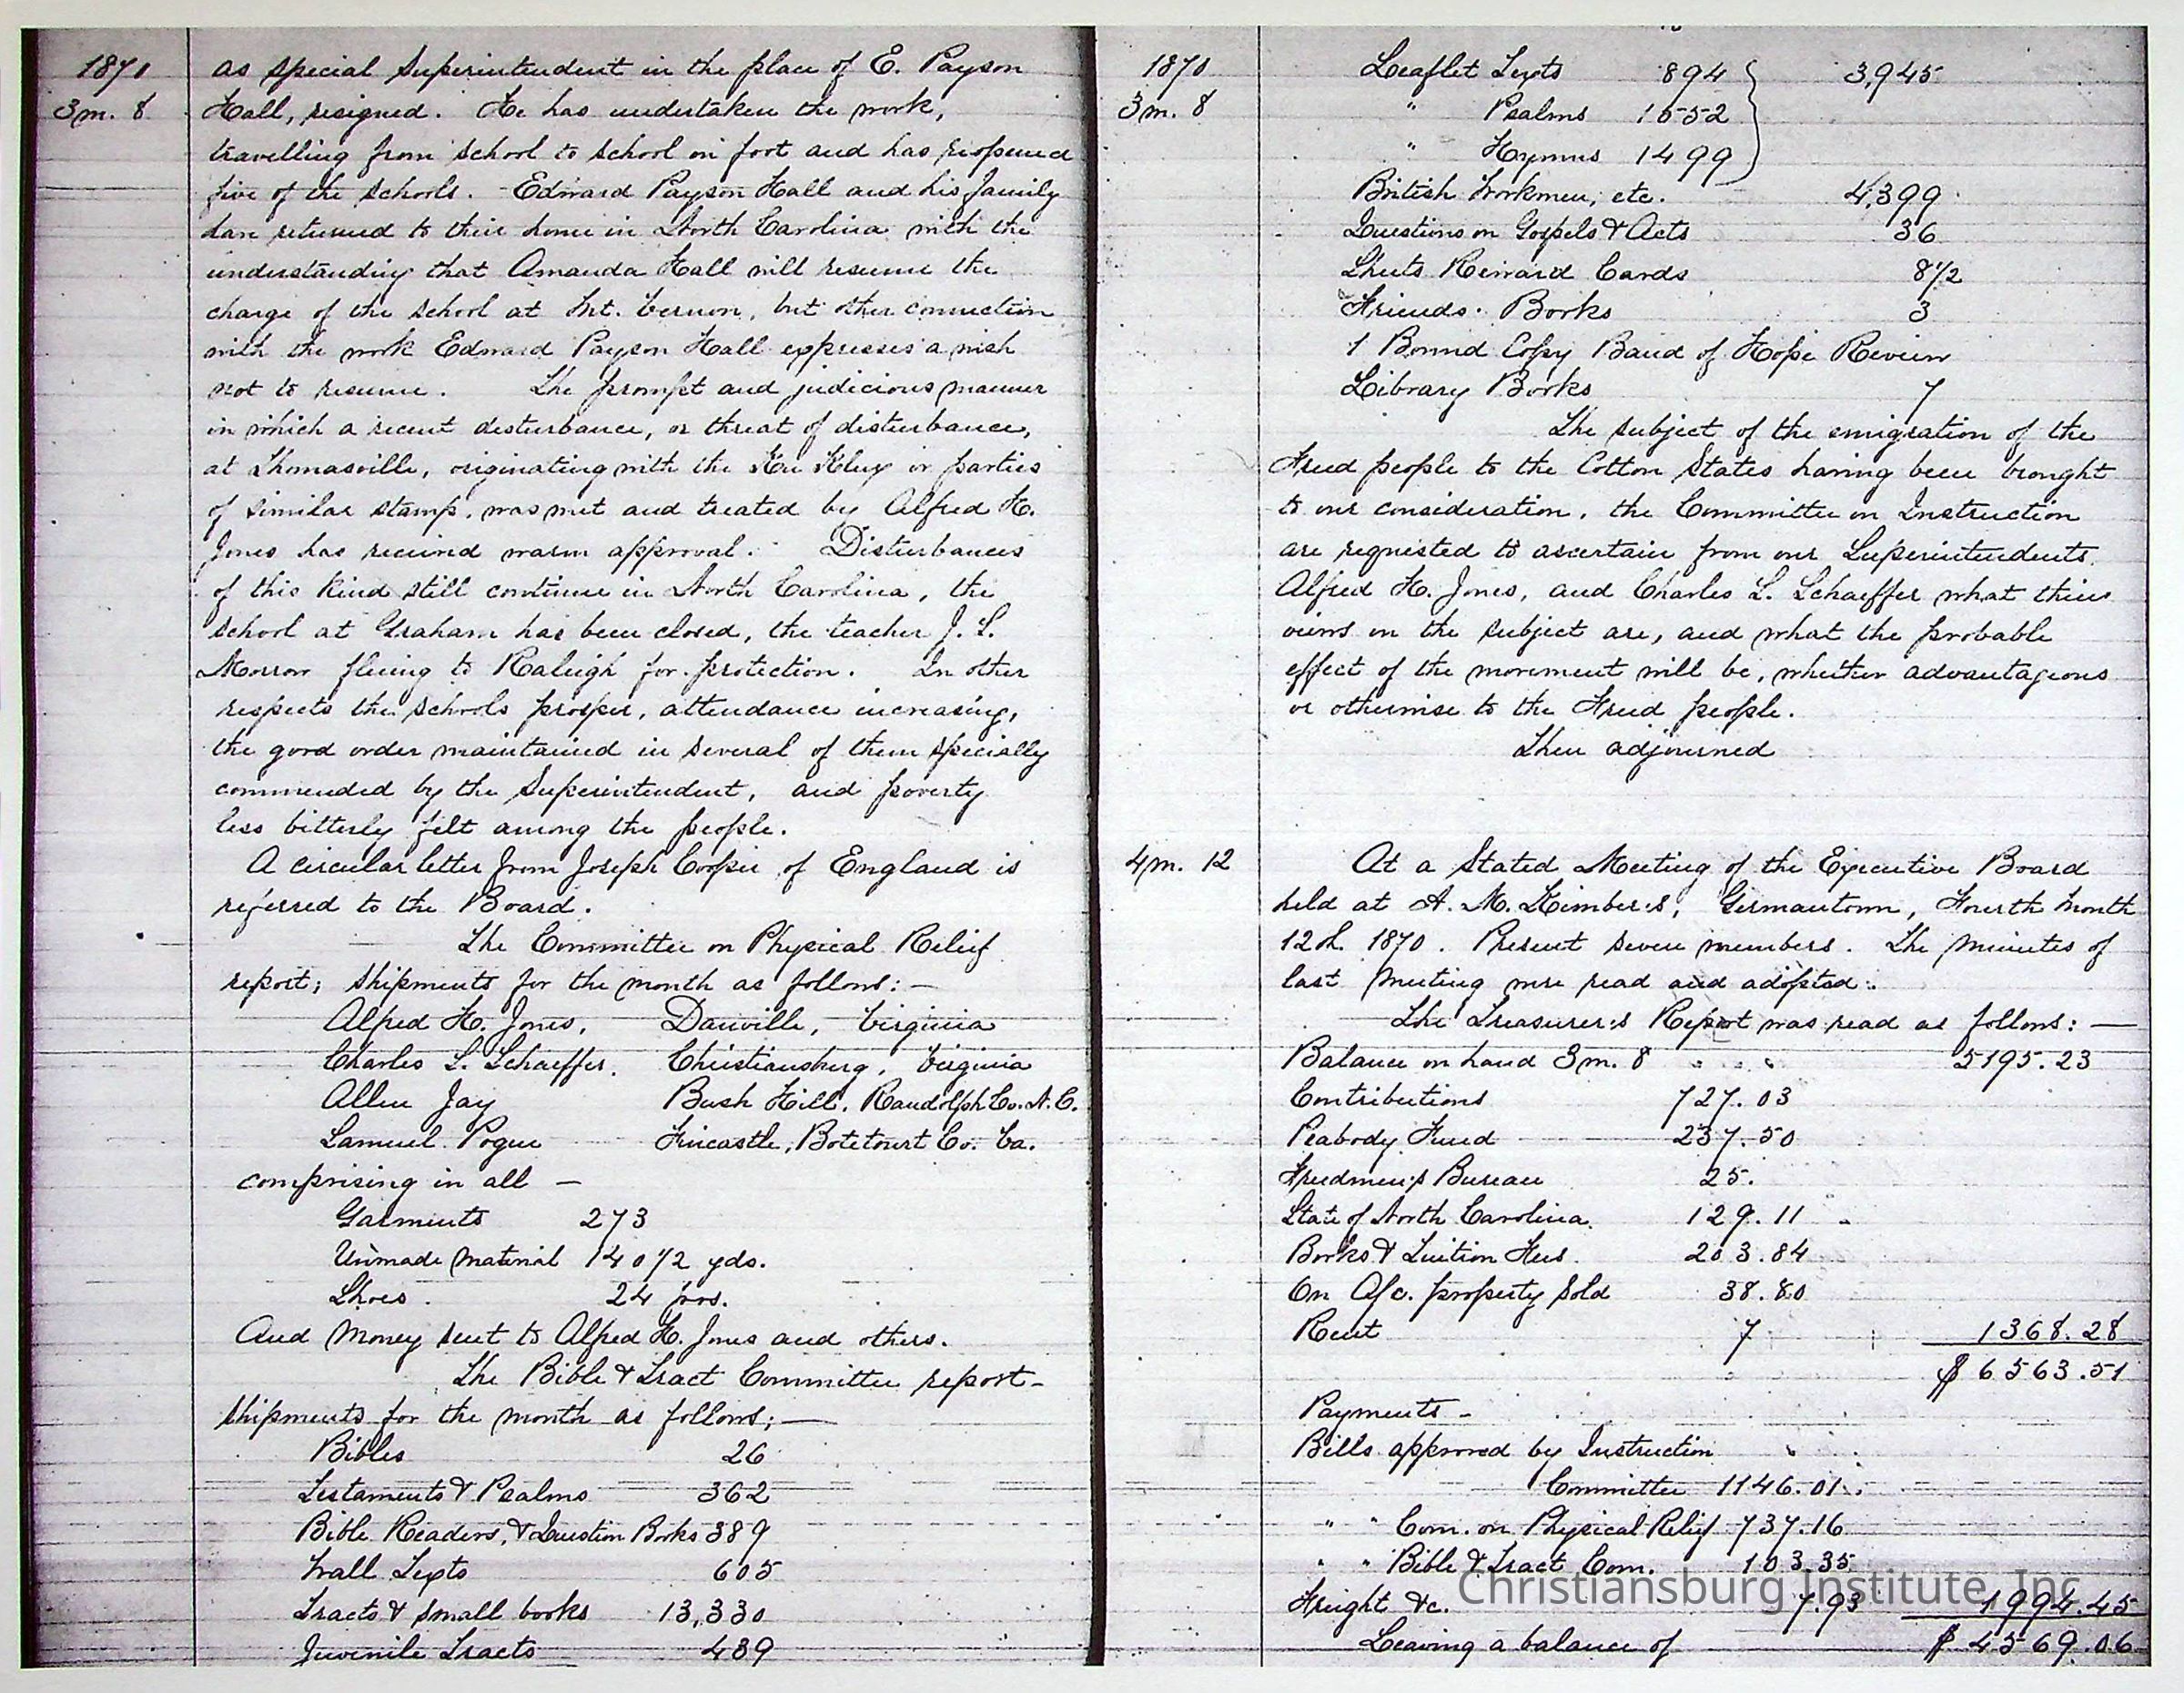 1870
3m. 8
as special Superintendent in the place of E. Payson
Hall, resigned. He has undertaken the work,
travelling from school to school on foot and has reopened
five of the schools. Edward Payson Hall and his family
have returned to their home in North Carolina with the
understanding that Amanda Hall will resume the
charge of the school at Mt. Vernon, but other connection
with the work Edward Payson Hall expresses a wish
not to resume. The prompt and judicious manner
in which a recent disturbance, or threat of disturbance,
at Thomasville, originating with the Ku Klux or parties
of similar stamp, was met and treated by Alfred H.
Jones has received warm approval. Disturbances
of this kind still continue in North Carolina, the
school at Graham has been closed, the teacher J. S.
Morrow fleeing to Raleigh for protection. In other
respects the schools prosper, attendance increasing,
the good order maintained in several of them specially
commended by the Superintendent, and poverty
less bitterly felt among the people.
A circular letter from Joseph Cooper of England is
referred to the Board.
The Committee on Physical Relief
report; shipments for the month as follows: —
Alfred H. Jones, Danville, Virginia
Charles S. Schaeffer. Christiansburg, Virginia
Allen Jay Bush Hill, Randolph Co. N.C.
Samuel Pogue Fincastle, Botetourt Co. Va.
comprising in all —
Garments 273
Unmade Material 140 1/2 yds.
Shoes 24 prs.
And Money sent to Alfred H. Jones and others.
The Bible & Tract Committee report-
shipments for the month as follows; —
Bibles 26
Testaments & Psalms 362
Bible Readers, & Question Books 389
Wall Texts 605
Tracts & small books 13,330
Juvenile Tracts 489
1870
3m. 8
Leaflet Texts 894 } 3,945
" Psalms 1552
" Hymns 1499
British Workmen, etc. 4,399
Questions on Gospels & Acts 36
Sheets Reward Cards 8 1/2
Friends' Books 3
1 Bound Copy Band of Hope Review
Library Books 7
The subject of the emigration of the
Freed people to the Cotton States having been brought
to our consideration, the Committee on Instruction
are requested to ascertain from our Superintendents,
Alfred H. Jones, and Charles S. Schaeffer what their
views on the subject are, and what the probable
effect of the movement will be, whether advantageous
or otherwise to the Freed people.
Then adjourned
4m. 12
At a Stated Meeting of the Executive Board
held at A. M. Kimber's, Germantown, Fourth Month
12th. 1870. Present seven members. The minutes of
last Meeting were read and adopted.
The Treasurer's Report was read as follows: —
Balance on hand 3m. 8 5195.23
Contributions 727.03
Peabody Fund 237.50
Freedmen's Bureau 25.
State of North Carolina. 129.11
Books & Tuition Fees. 203.84
On A/c. property sold 38.80
Rent 7 1368.28
$ 6563.51
Payments -
Bills approved by Instruction
Committee 1146.01
" " Com. on Physical Relief 737.16
" " Bible & Tract Com. 103.35
Freight &c. 7.93 1994.45
Leaving a balance of $ 4569.06
Christiansburg Institute, Inc